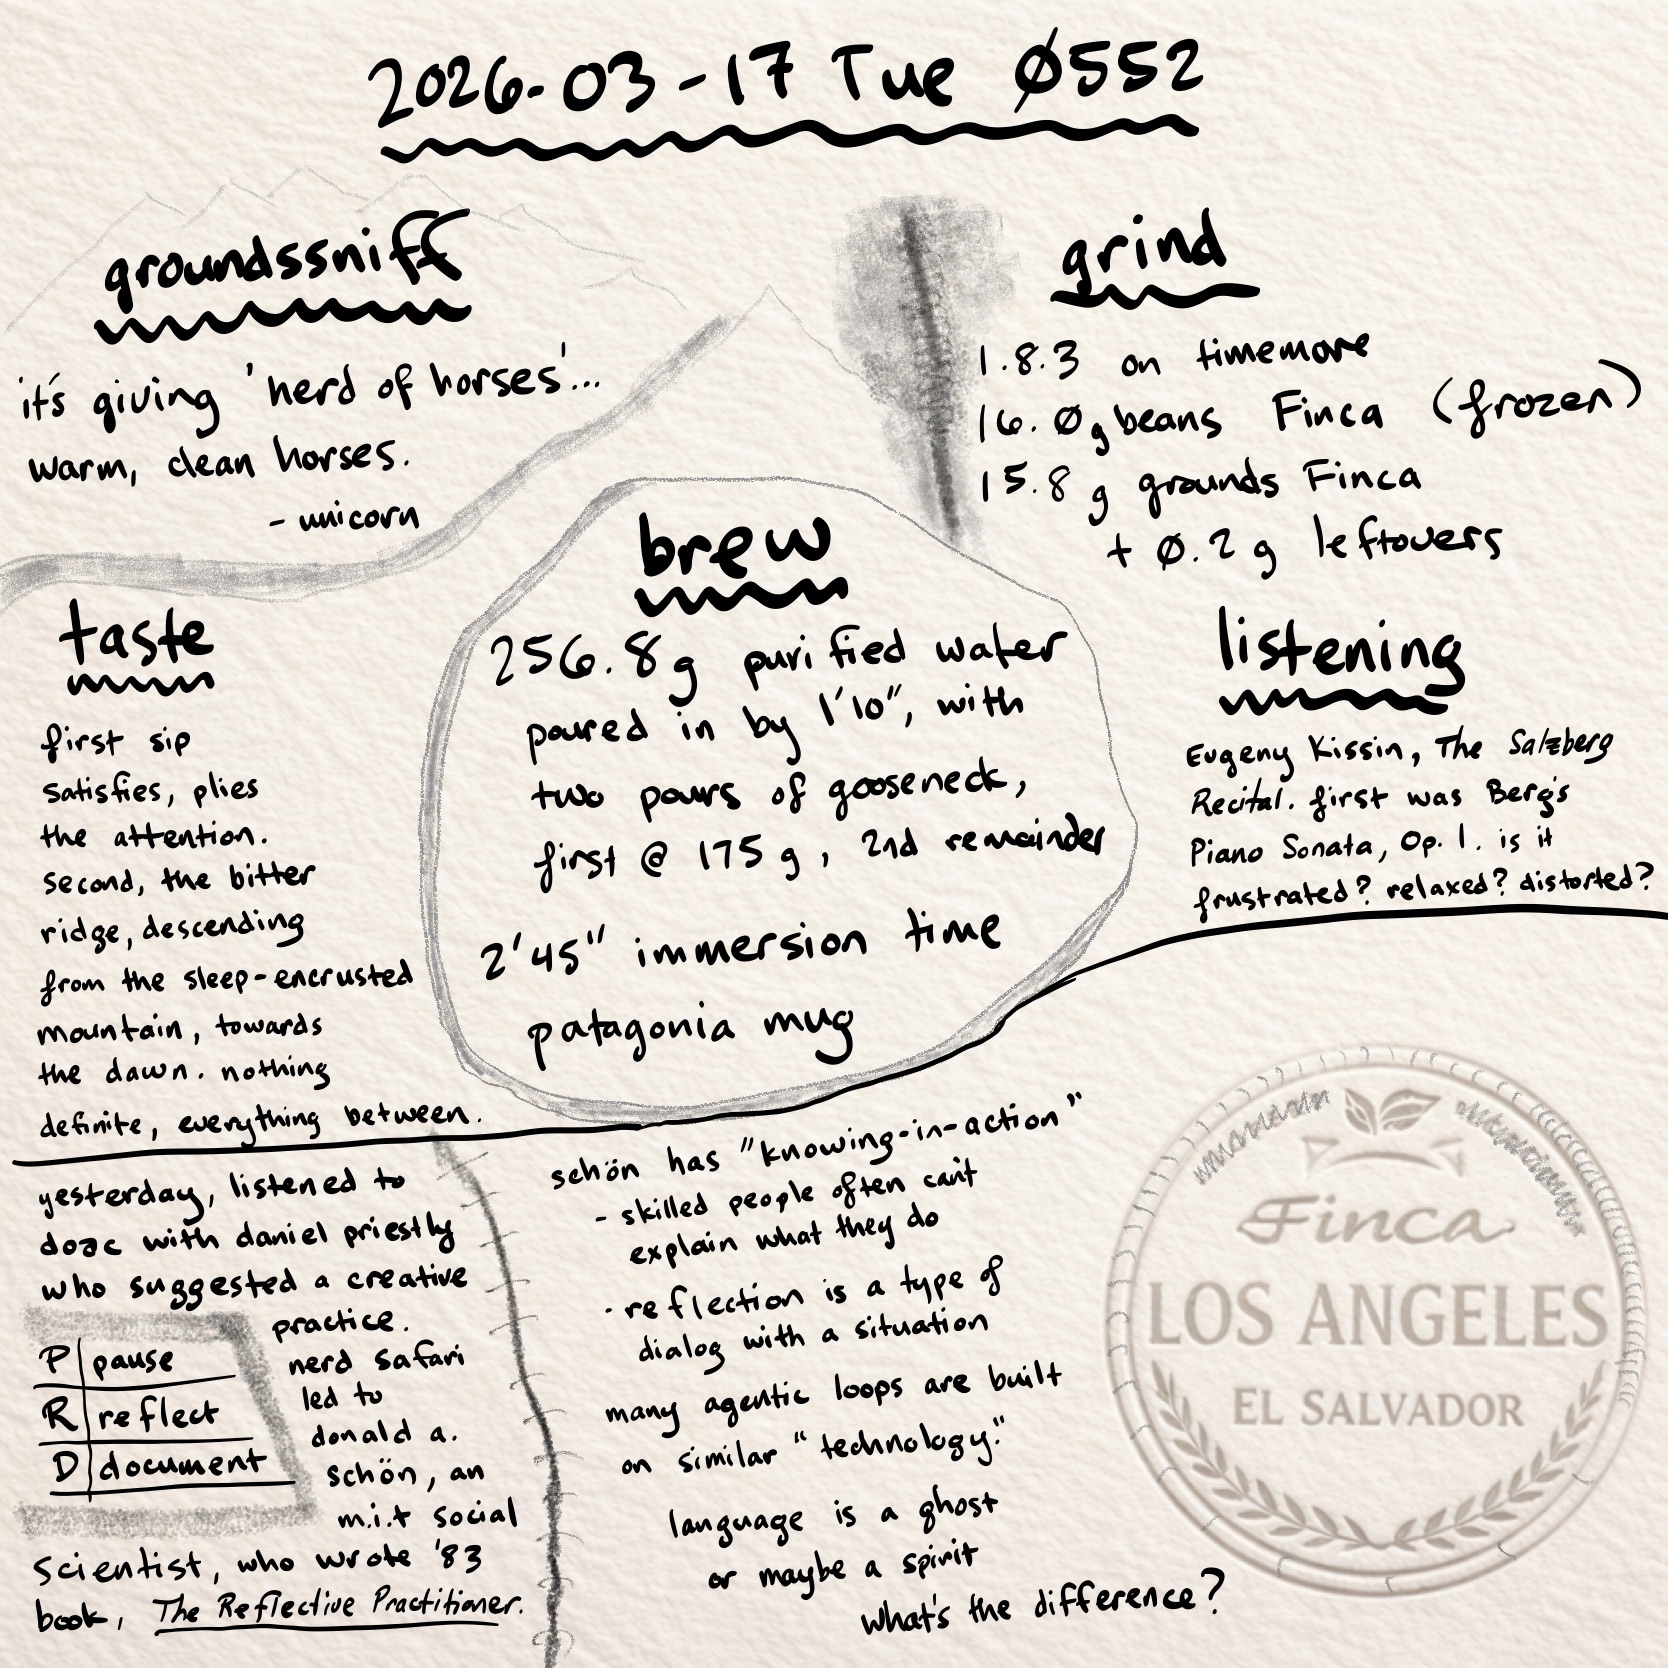 2026-03-17 Tue Ø552
groundssniff
it's giving 'herd of horses'...
warm, clean horses.
- unicorn
grind
1.8.3 on timemore
16.Ø g beans Finca (frozen)
15.8 g grounds Finca
+ Ø.2 g leftovers
brew
256.8 g purified water
poured in by 1'10", with
two pours of gooseneck,
first @ 175 g, 2nd remainder
2'45" immersion time
patagonia mug
taste
first sip
satisfies, plies
the attention.
second, the bitter
ridge, descending
from the sleep-encrusted
mountain, towards
the dawn. nothing
definite, everything between.
listening
Evgeny Kissin, The Salzberg
Recital. first was Berg's
Piano Sonata, Op. 1. is it
frustrated? relaxed? distorted?
yesterday, listened to
doac with daniel priestly
who suggested a creative
practice.
P pause
R reflect
D document
nerd safari
led to
donald a.
schön, an
m.i.t social
scientist, who wrote '83
book, The Reflective Practitioner.
schön has "knowing-in-action"
- skilled people often can't
explain what they do
- reflection is a type of
dialog with a situation
many agentic loops are built
on similar "technology."
language is a ghost
or maybe a spirit
what's the difference?
Finca
LOS ANGELES
EL SALVADOR